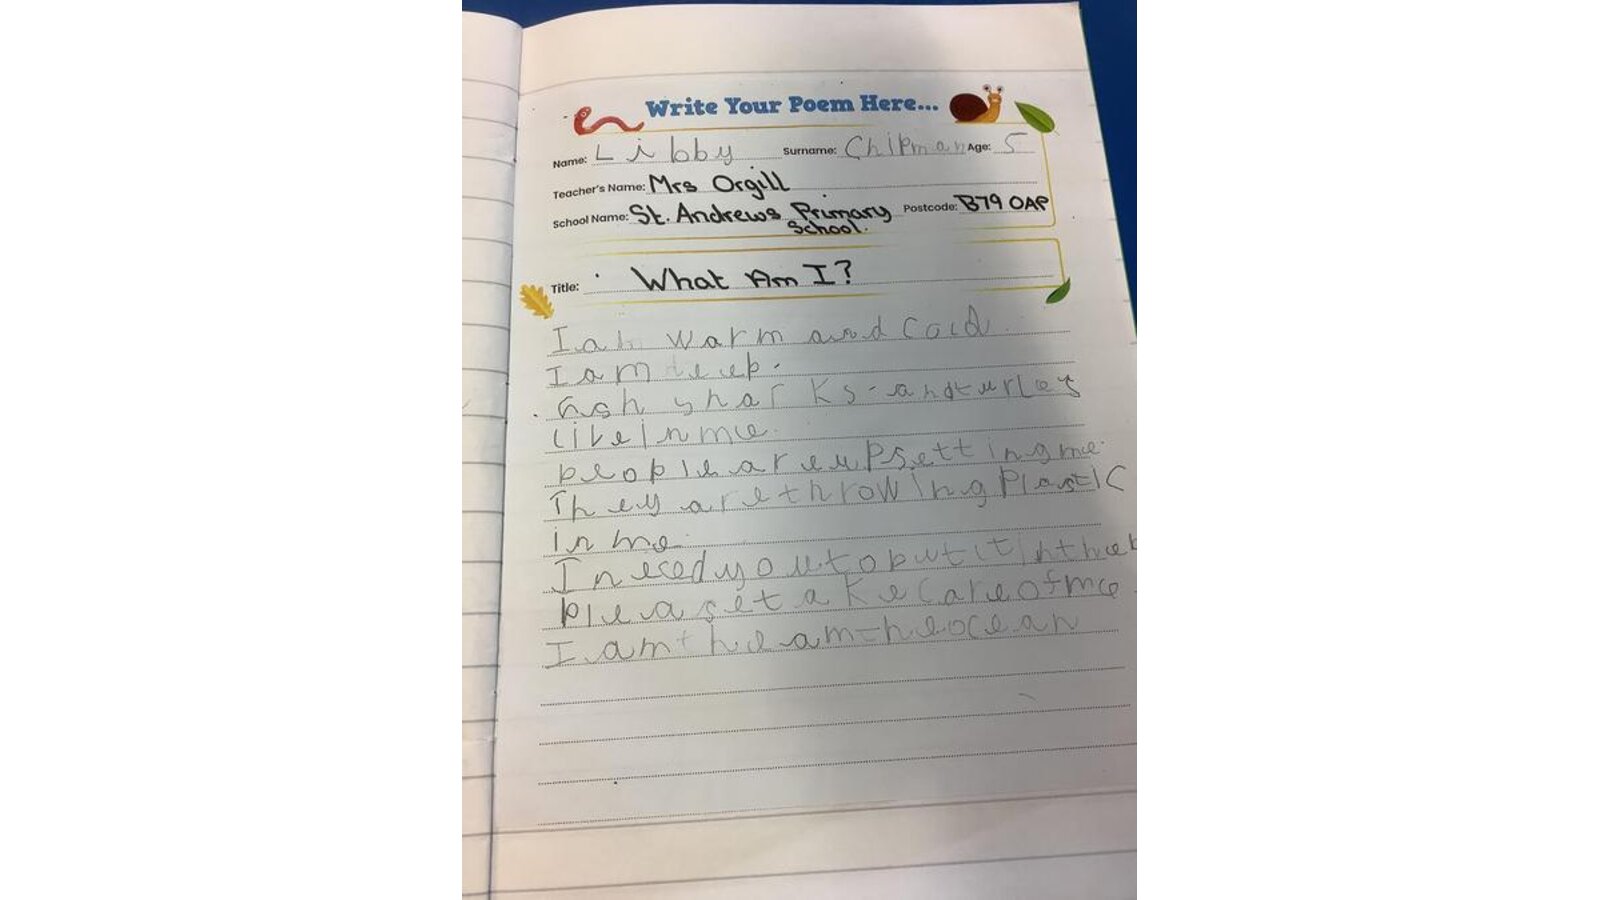 Write Your Poem Here...
Name: Libby Surname: Chipman Age: 5
Teacher's Name: Mrs Orgill
School Name: St. Andrews Primary School. Postcode: B79 0AP
Title: What Am I?
I am warm and cold
I am deep.
fish sharks and turles
live in me.
people are upsetting me.
They are throwing plastic
in me.
I need you to put it in the b
please take care of me.
I am the am the ocean